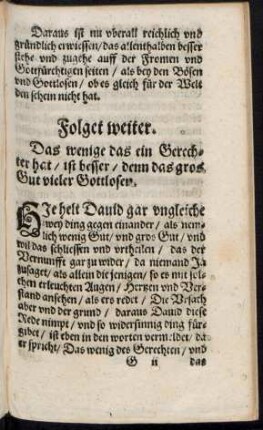 Daraus ist nu vberall reichlich vnd
gründlich erwiesen/ das allenthalben besser
stehe vnd zugehe auff der Fromen vnd
Gottfürchtigen seiten/ als bey den Bösen
vnd Gottlosen/ ob es gleich für der Welt
den schein nicht hat.
Folget weiter.
Das wenige das ein Gerech-
ter hat/ ist besser/ denn das gros
Gut vieler Gottlosen.
HIe helt Dauid gar vngleiche
zwey ding gegen einander/ als nem-
lich wenig Gut/ vnd gros Gut/ vnd
wil das schliessen vnd vrtheilen/ das der
Vernunfft gar zu wider/ da niemand Ja
zusaget/ als allein die jenigen/ so es mit sol-
chen erleuchten Augen/ Hertzen vnd Ver-
stand ansehen/ als ers redet/ Die Vrsach
aber vnd der grund/ daraus Dauid diese
Rede nimpt/ vnd so widersinnig ding für-
gibet/ ist eben in den worten vermeldet/ da
er spricht/ Das wenig des Gerechten/ vnd
G ij das